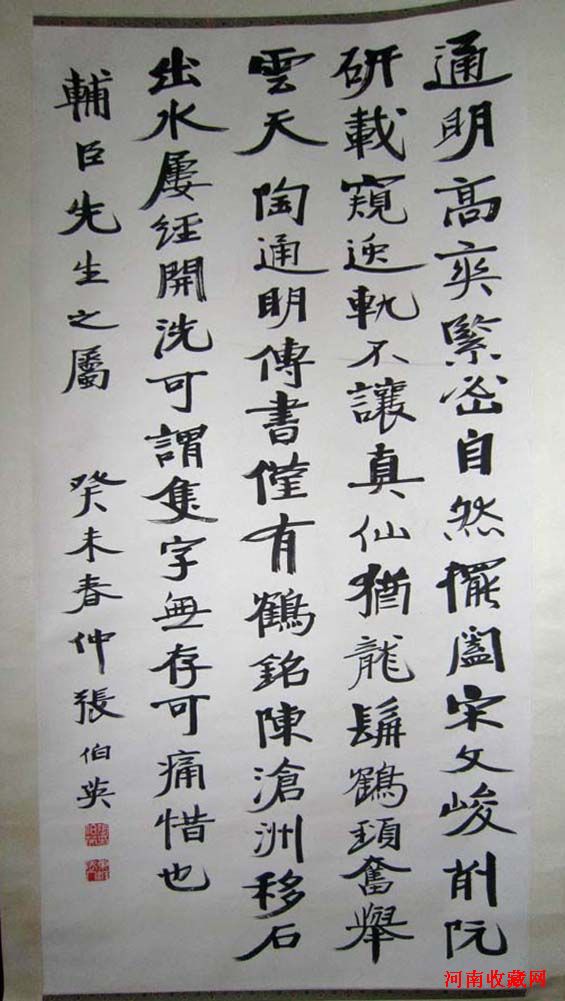 通明高爽緊密自然擺闔宋文峻削阮
研載窺逸軌不讓真仙猶龍鬅鶴頚奮舉
雲天陶通明傳書僅有鶴銘陳滄洲移石
出水屢經開洗可謂隻字無存可痛惜也
輔臣先生之屬 癸未春仲張伯英
河南收藏网